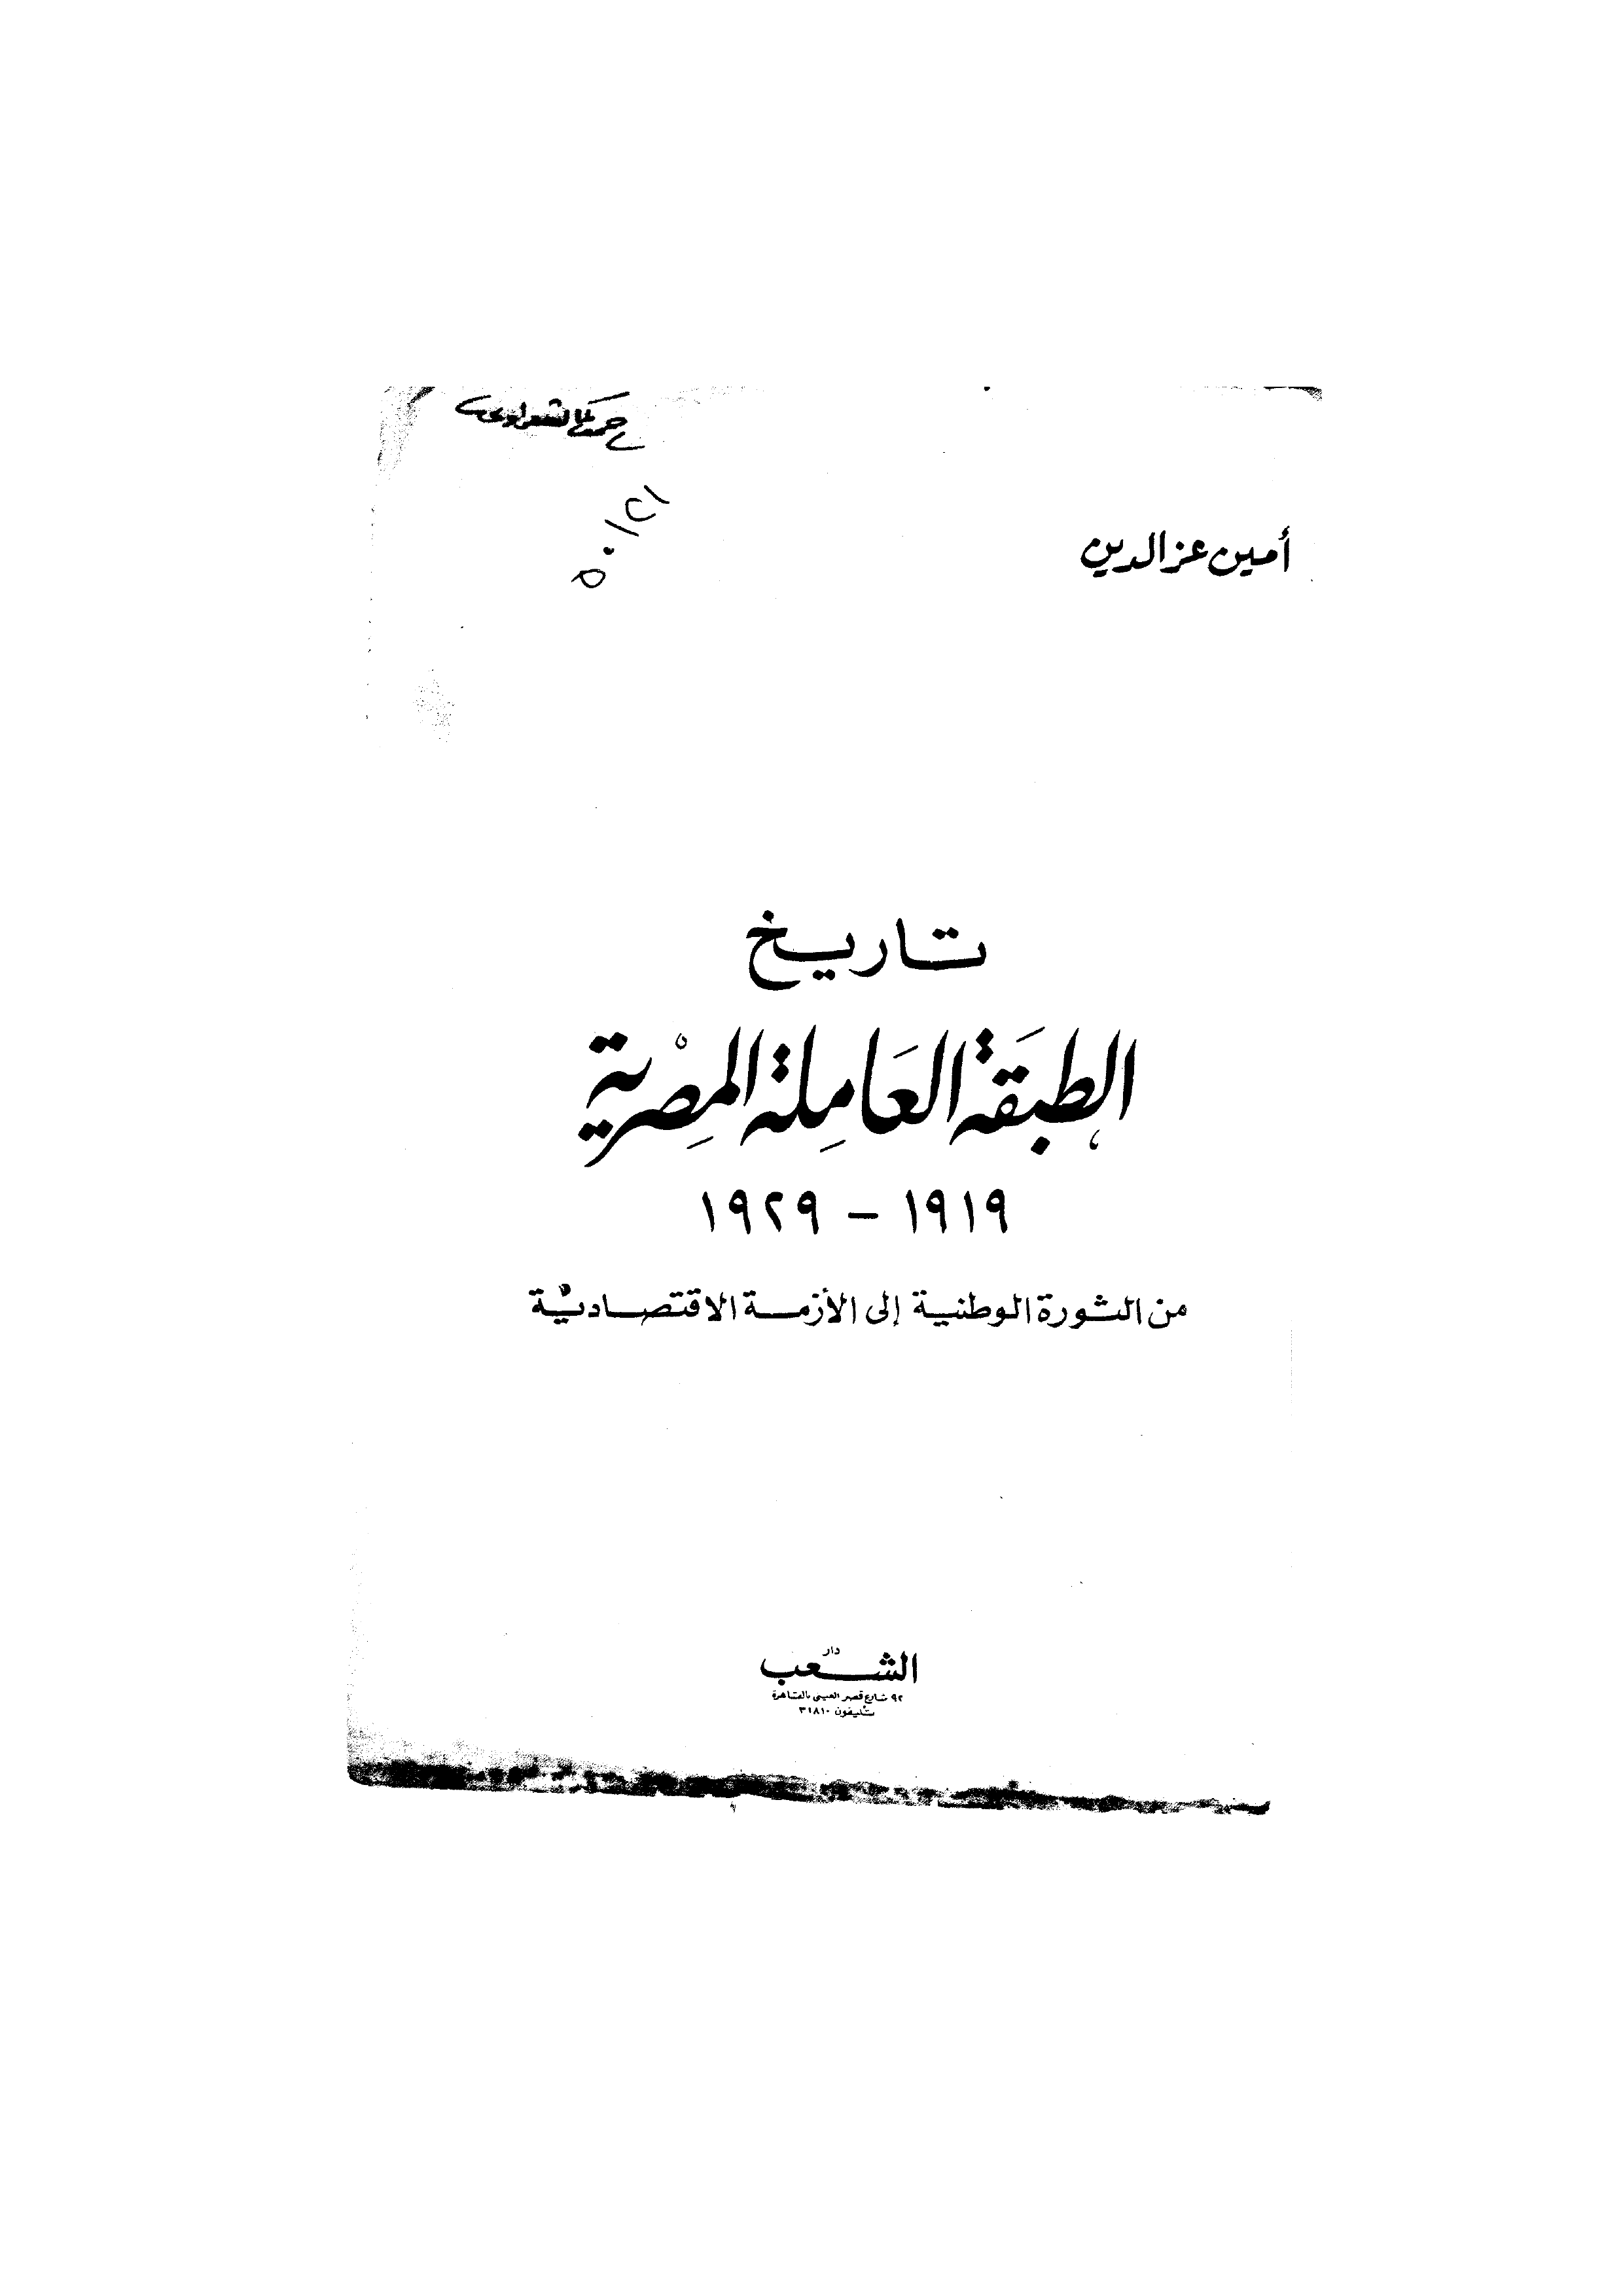 أمين عز الدين
تاريخ
الطبَقة العَامِلة المصْرِية
١٩١٩ - ١٩٢٩
من الثورة الوطنية إلى الأزمة الاقتصادية
دار
الشعب
٩٢ شارع قصر العينى بالقاهرة
تليفون ٣١٨١٠